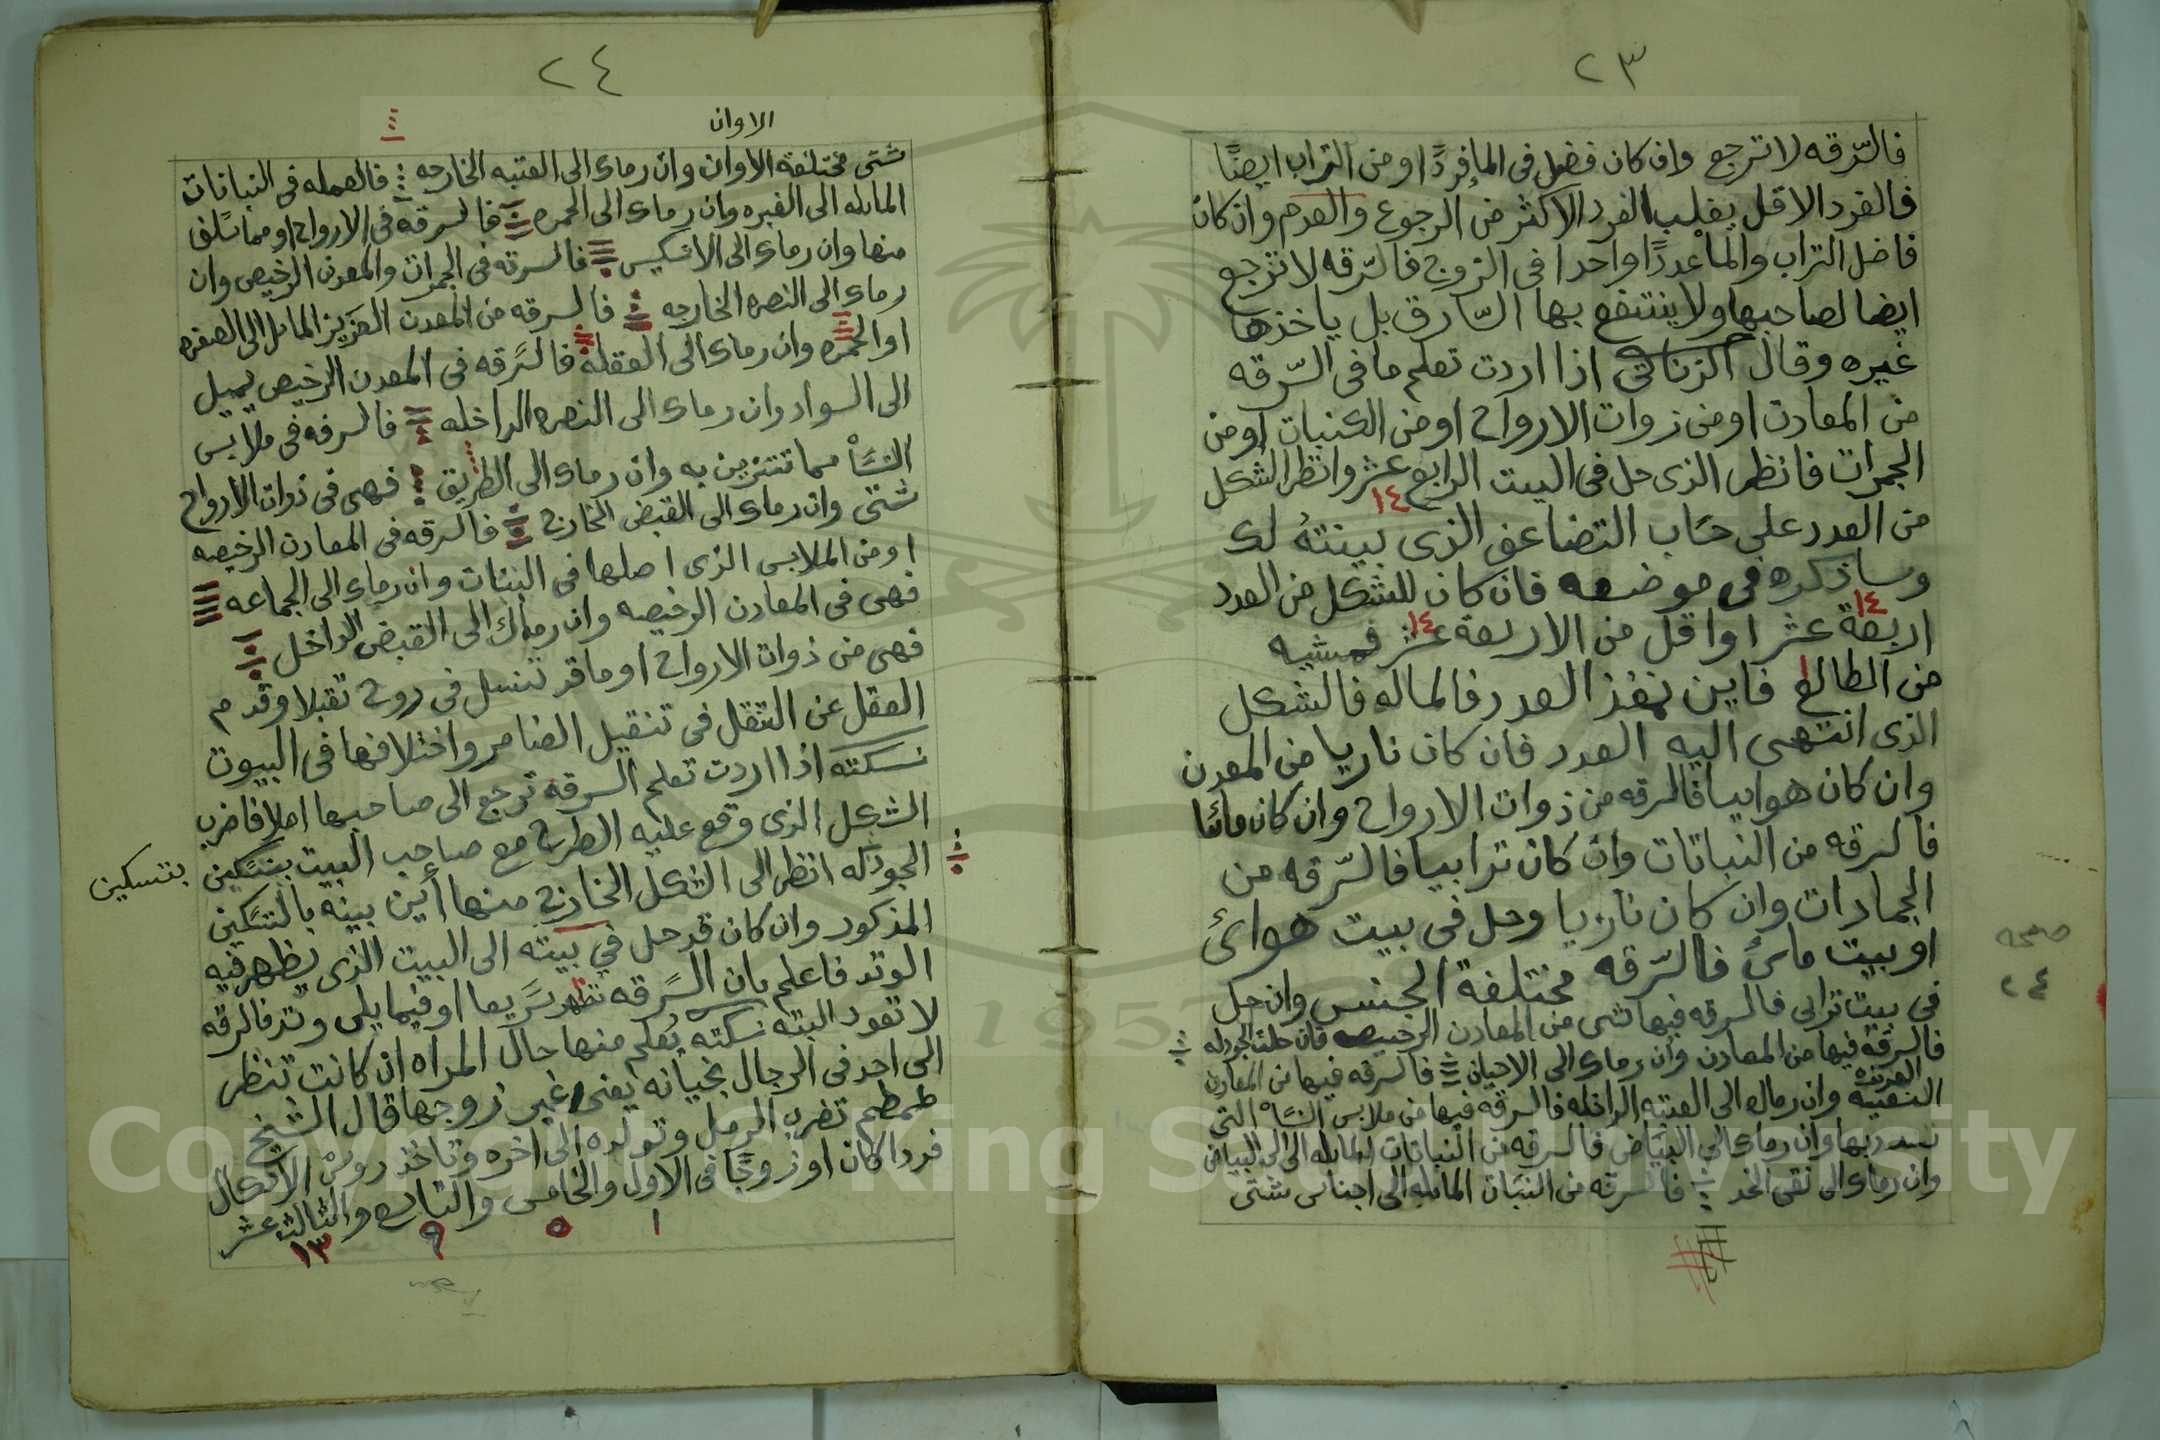 ٢٣
فالسّرقه لا ترجع وان كان فضل فى الما فردًا ومن التراب ايضًا
فالفرد الاقل يغلب الفرد الاكثر من الرجوع والعدم وان كان
فاضل التراب والما عددًا واحدا فى الزوج فالسّرقه لا ترجع
ايضا لصاحبها ولا ينتفع بها السّارق بل ياخذها
غيره وقال الزناتى اذا اردت تعلم ما فى السّرقه
من المعادن او من زوات الارواح او من النباتات او من
الجمرات فانظر الذى حل فى البيت الرابع عشر وانظر الشكل
١٤
من العدد على حسَاب التضاعف الذى بينتهُ لك
وساذكره فى موضعه فان كان للشكل من العدد
١٤
اربعة عشر او اقل من الاربعة عشر فمشيه
١٤
من الطالع فاين نفذ العدد فالماله فالشكل
الذى انتهى اليه العدد فان كان ناريا من المعدن
وان كان هوايبا فالسرقه من زوات الارواح وان كان مائيا
فالسرقه من النباتات وان كان ترابيا فالسّرقه من
الجمادات وان كان ناريا وحل فى بيت هوائ
او بيت مائ فالسّرقه مختلفة الجنس وان حل
فى بيت ترابى فالسرقه فيها شى من المعادن الرخيصه فان حلت الجودله
فالسرقة فيها من المعادن وان رماك الى الاحيان فالسرقه فيها من المعادن
النقيه وان رماك الى العتبه الداخله فالسرقه فيها من ملابس النسَّاْ التى
بها وان رماك الى البيَاض فالسرقه من النباتات المايله الى البياض
وان رماك الى نقى الخد فالسرقه من النبات المايله الى اجناس شتى
صفحه
٢٤
٢٤
الاوان
شتى مختلفة الاوان وان رماك الى العتبه الخارجه فالعمله فى النباتات
المايله الى الغبره وان رماك الى الحمره فالسرقه فى الارواح او مما
منها وان رماك الى الانكيس فالسرقه فى الجمرات والمعدن الرخيص وان
رماك الى النصره الخارجه فالسرقه من المعدن العزيز المايل الى الصفره
او الحمره وان رماك الى العقله فالسَّرقه فى المعدن الرخيص يميل
الى السواد وان رماك الى النصره الداخله فالسرقه فى ملابس
النسَّاْ مما تتزين به وان رماك الى الطريق فهى فى ذوات الارواح
شتى وان رماك الى القبض الخارج فالسرقه فى المعادن الرخيصه
او من الملابس الذى اصلها فى النبات وان رماك الى الجماعه
فهى فى المعادن الرخيصه وان رماك الى القبض الداخل
فهى من ذوات الارواح او ما قد تنسل فى روح تقبلا وقدم
العقل عن التثقل فى تنقيل الضامر واختلافها فى البيوت
نسكته اذا اردت تعلم السرقه ترجع الى صاحبها املا فاضرب
الشكل الذى وقع عليه الطرح مع صاحب البيت بتسكين
بتسكين
الجودله انظر الى الشكل الخارج منها اين بيته بالتسكين
المذكور وان كان قد حل فى بيته الى البيت الذى يظهر فيه
الوتد فاعلم بان السَّرقه تظهر سَريعا او فيما يلى وتد فالسرقه
لا تعود البته نسكته يُعلم منها حال المراه ان كانت تنظر
الى احد فى الرجال بخيانه يعنى غير زوجها قال الشيخ
طمطم تضرب الرمل وتولده الى اخره وتاخذ روس الاشكال
فردا كان او زوجًا فى الاول والخامس والتاسع والثالث عشر
١ ٥ ٩ ١٣
Copyright © King Saud University
1957